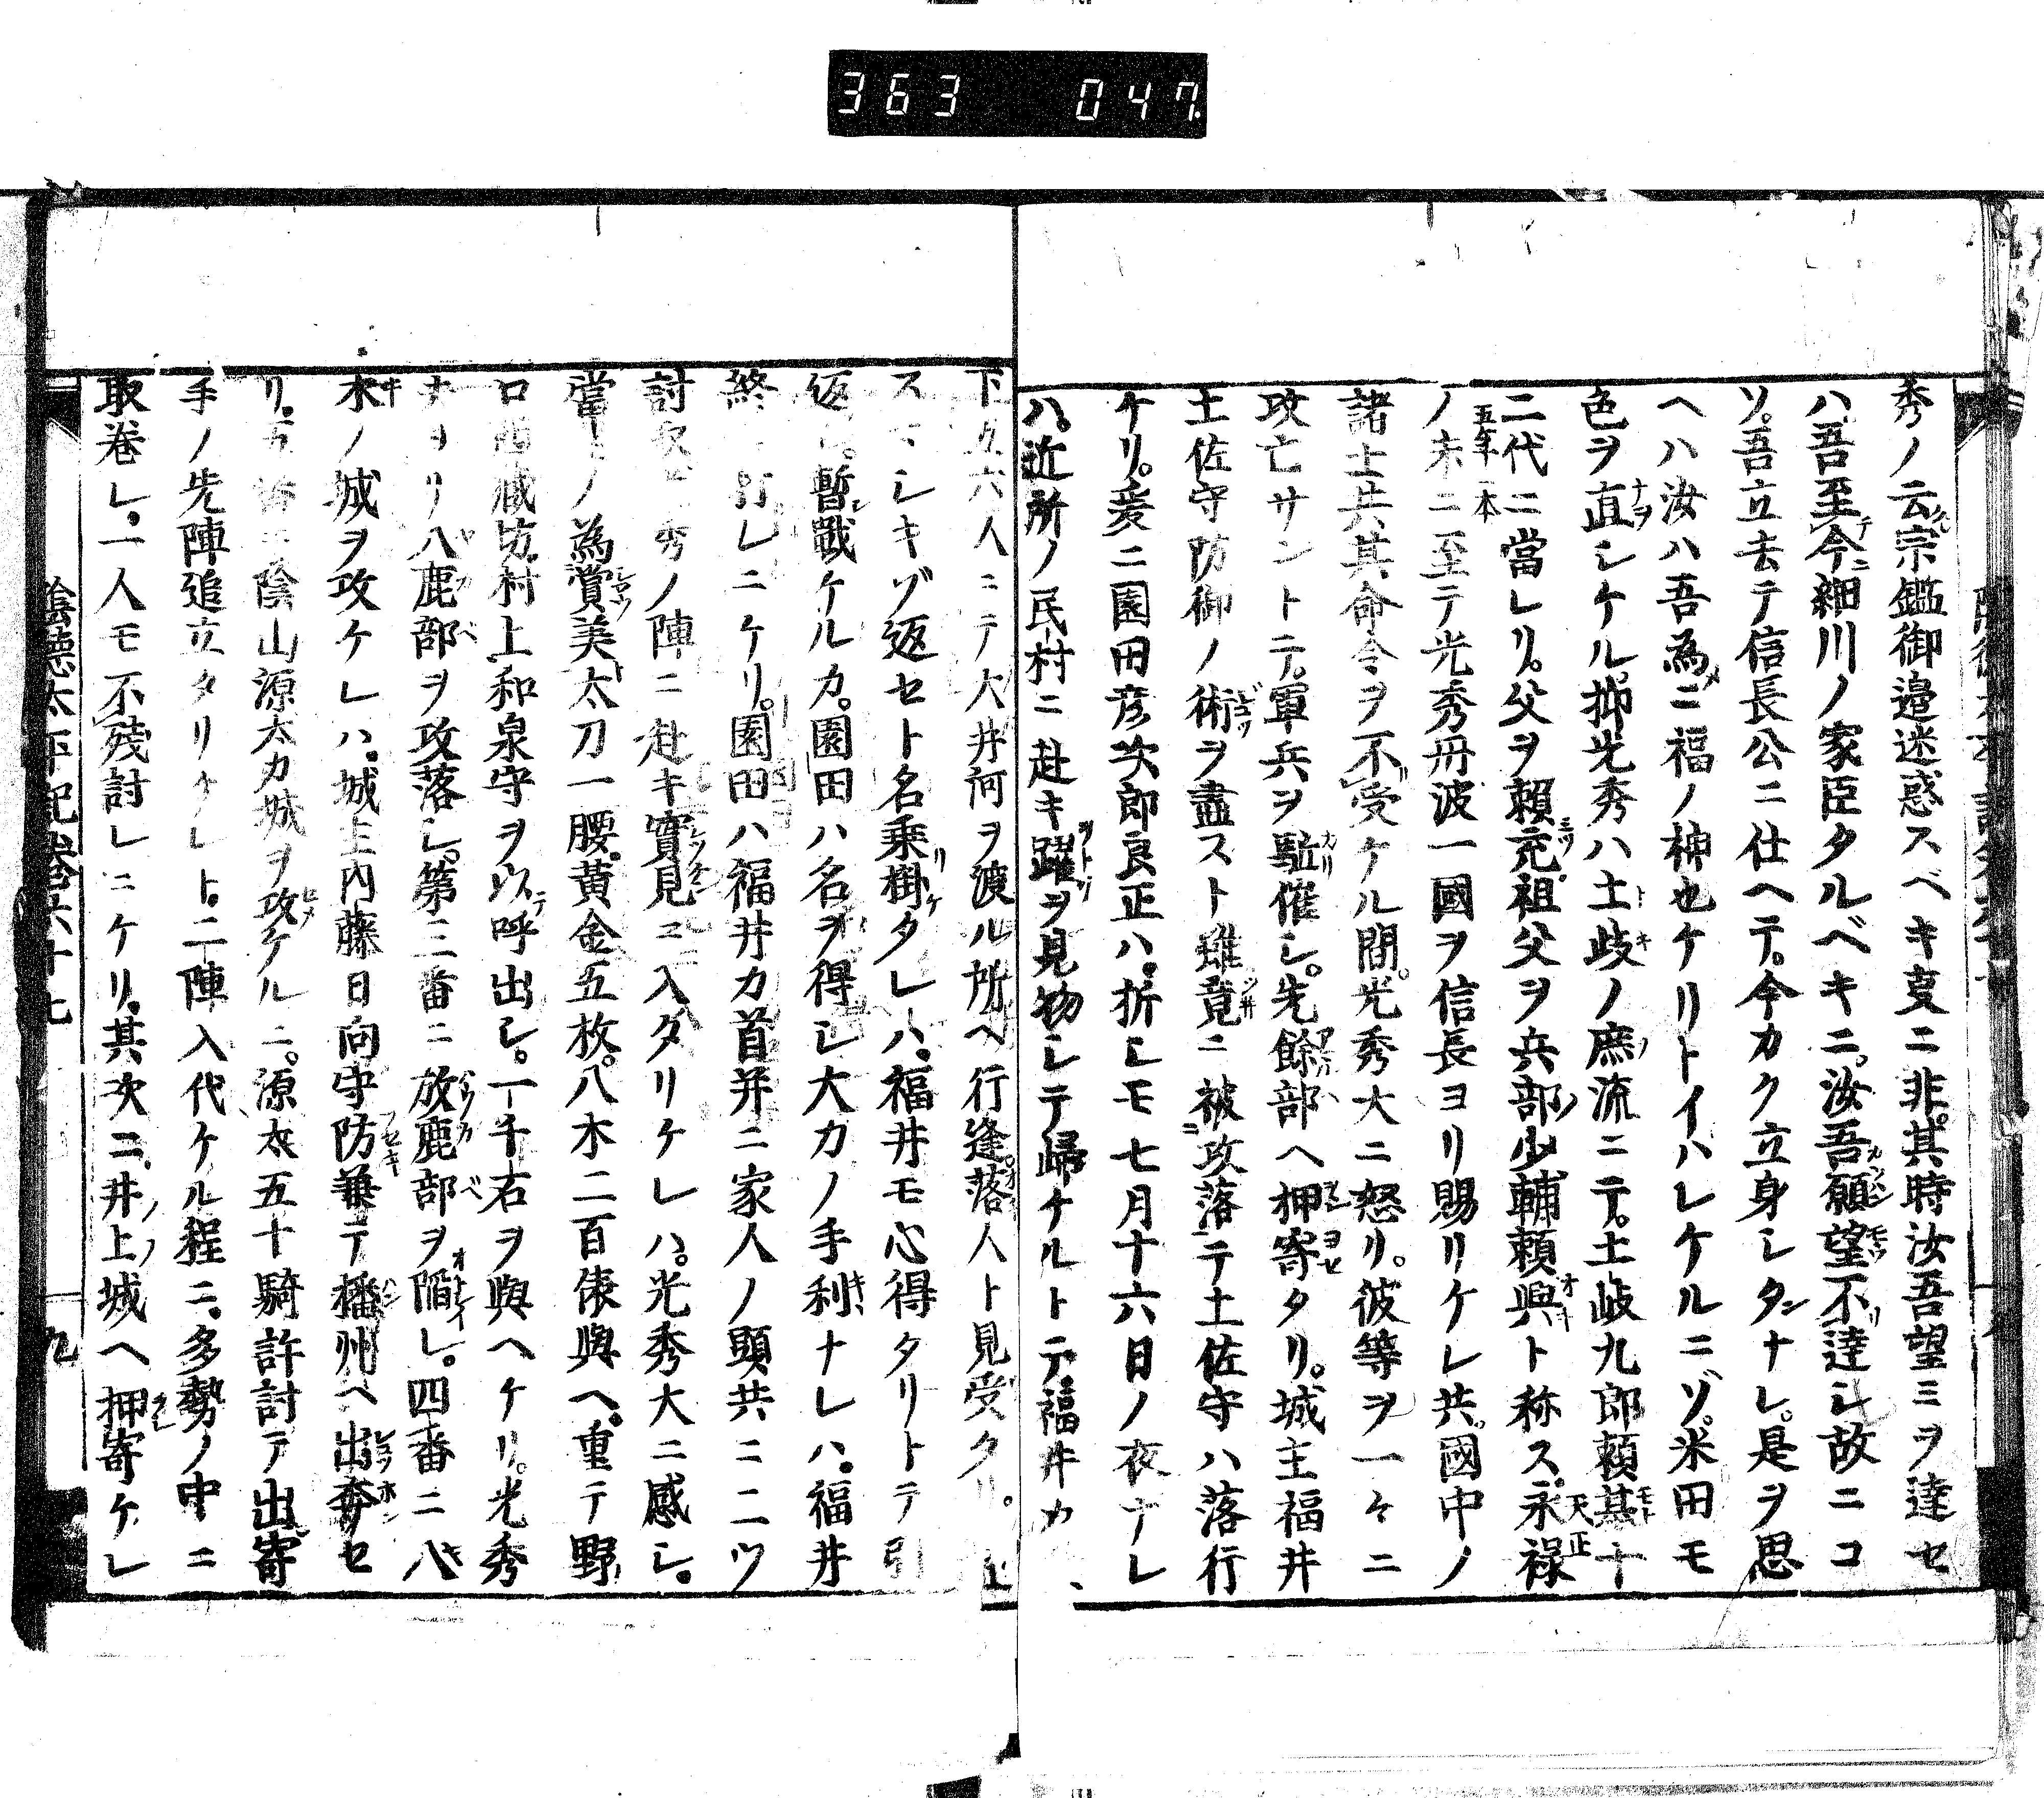 363 047
秀ノ云宗鑑御邉迷惑スベキ亰ニ非。其時汝吾望ミヲ達セ
ハ。吾至今細川ノ家臣タルベキニ。汝吾願望不達シ故ニコ
ソ。吾立去テ信長公ニ仕ヘテ。今カク立身シタンナレ。是ヲ思
ヘハ汝ハ吾為ニ福ノ神也ケリトイハレケルニゾ。米田モ
色ヲ直シケル。抑光秀ハ土歧ノ庶流ニテ。土歧九郎頼基十
二代ニ當レリ。父ヲ頼充祖父ヲ兵部少輔頼興ト称ス。永禄
天正五年一本
ノ末ニ至テ光秀丹波一國ヲ信長ヨリ賜リケレ共。國中ノ
諸士共其命令ヲ不受ケル間。光秀大ニ怒リ。彼等ヲ一々ニ
攻亡サントテ。軍兵ヲ駈催シ。先餘部ヘ押寄タリ。城主福井
土佐守防御ノ術ヲ盡スト雖竟ニ被攻落テ土佐守ハ落行
ケリ。爰ニ園田彦次郎良正ハ。折シモ七月十六日ノ夜ナレ
ハ。近所ノ民村ニ赴キ躍ヲ見物シテ歸ケルトテ。福井カ
下五六人ニテ大井河ヲ渡ル所ヘ行逢。落人ト見受タリ。
スマシキゾ返セト名乗掛タレハ。福井モ心得タリトテ引
返シ。暫戰ケルカ。園田ハ名ヲ得シ大カノ手利ナレハ。福井
終 討レニケリ。園田ハ福井カ首并ニ家人ノ頭共ニ二ツ
討 秀ノ陣ニ赴キ實見ニ入タリケレハ。光秀大ニ感シ。
當 ノ為賞美太刀一腰。黄金五枚。八木二百俵與ヘ。重テ野
口西蔵坊村上和泉守ヲ以呼出シ。一千石ヲ與ヘケリ。光秀
ナヲリ八鹿部ヲ攻落シ。第三番ニ放鹿部ヲ陥レ。四番ニ八
木ノ城ヲ攻ケレハ。城主内藤日向守防兼テ播州ヘ出奔セ
リ。五番ニ陰山源太カ城ヲ攻ケルニ。源太五十騎許討テ出寄
手ノ先陣追立タリケレト。二陣入代ケル程ニ。多勢ノ中ニ
取巻レ。一人モ不殘討レニケリ。其次ニ井上城ヘ押寄ケレ
陰徳太平記巻六十七 九